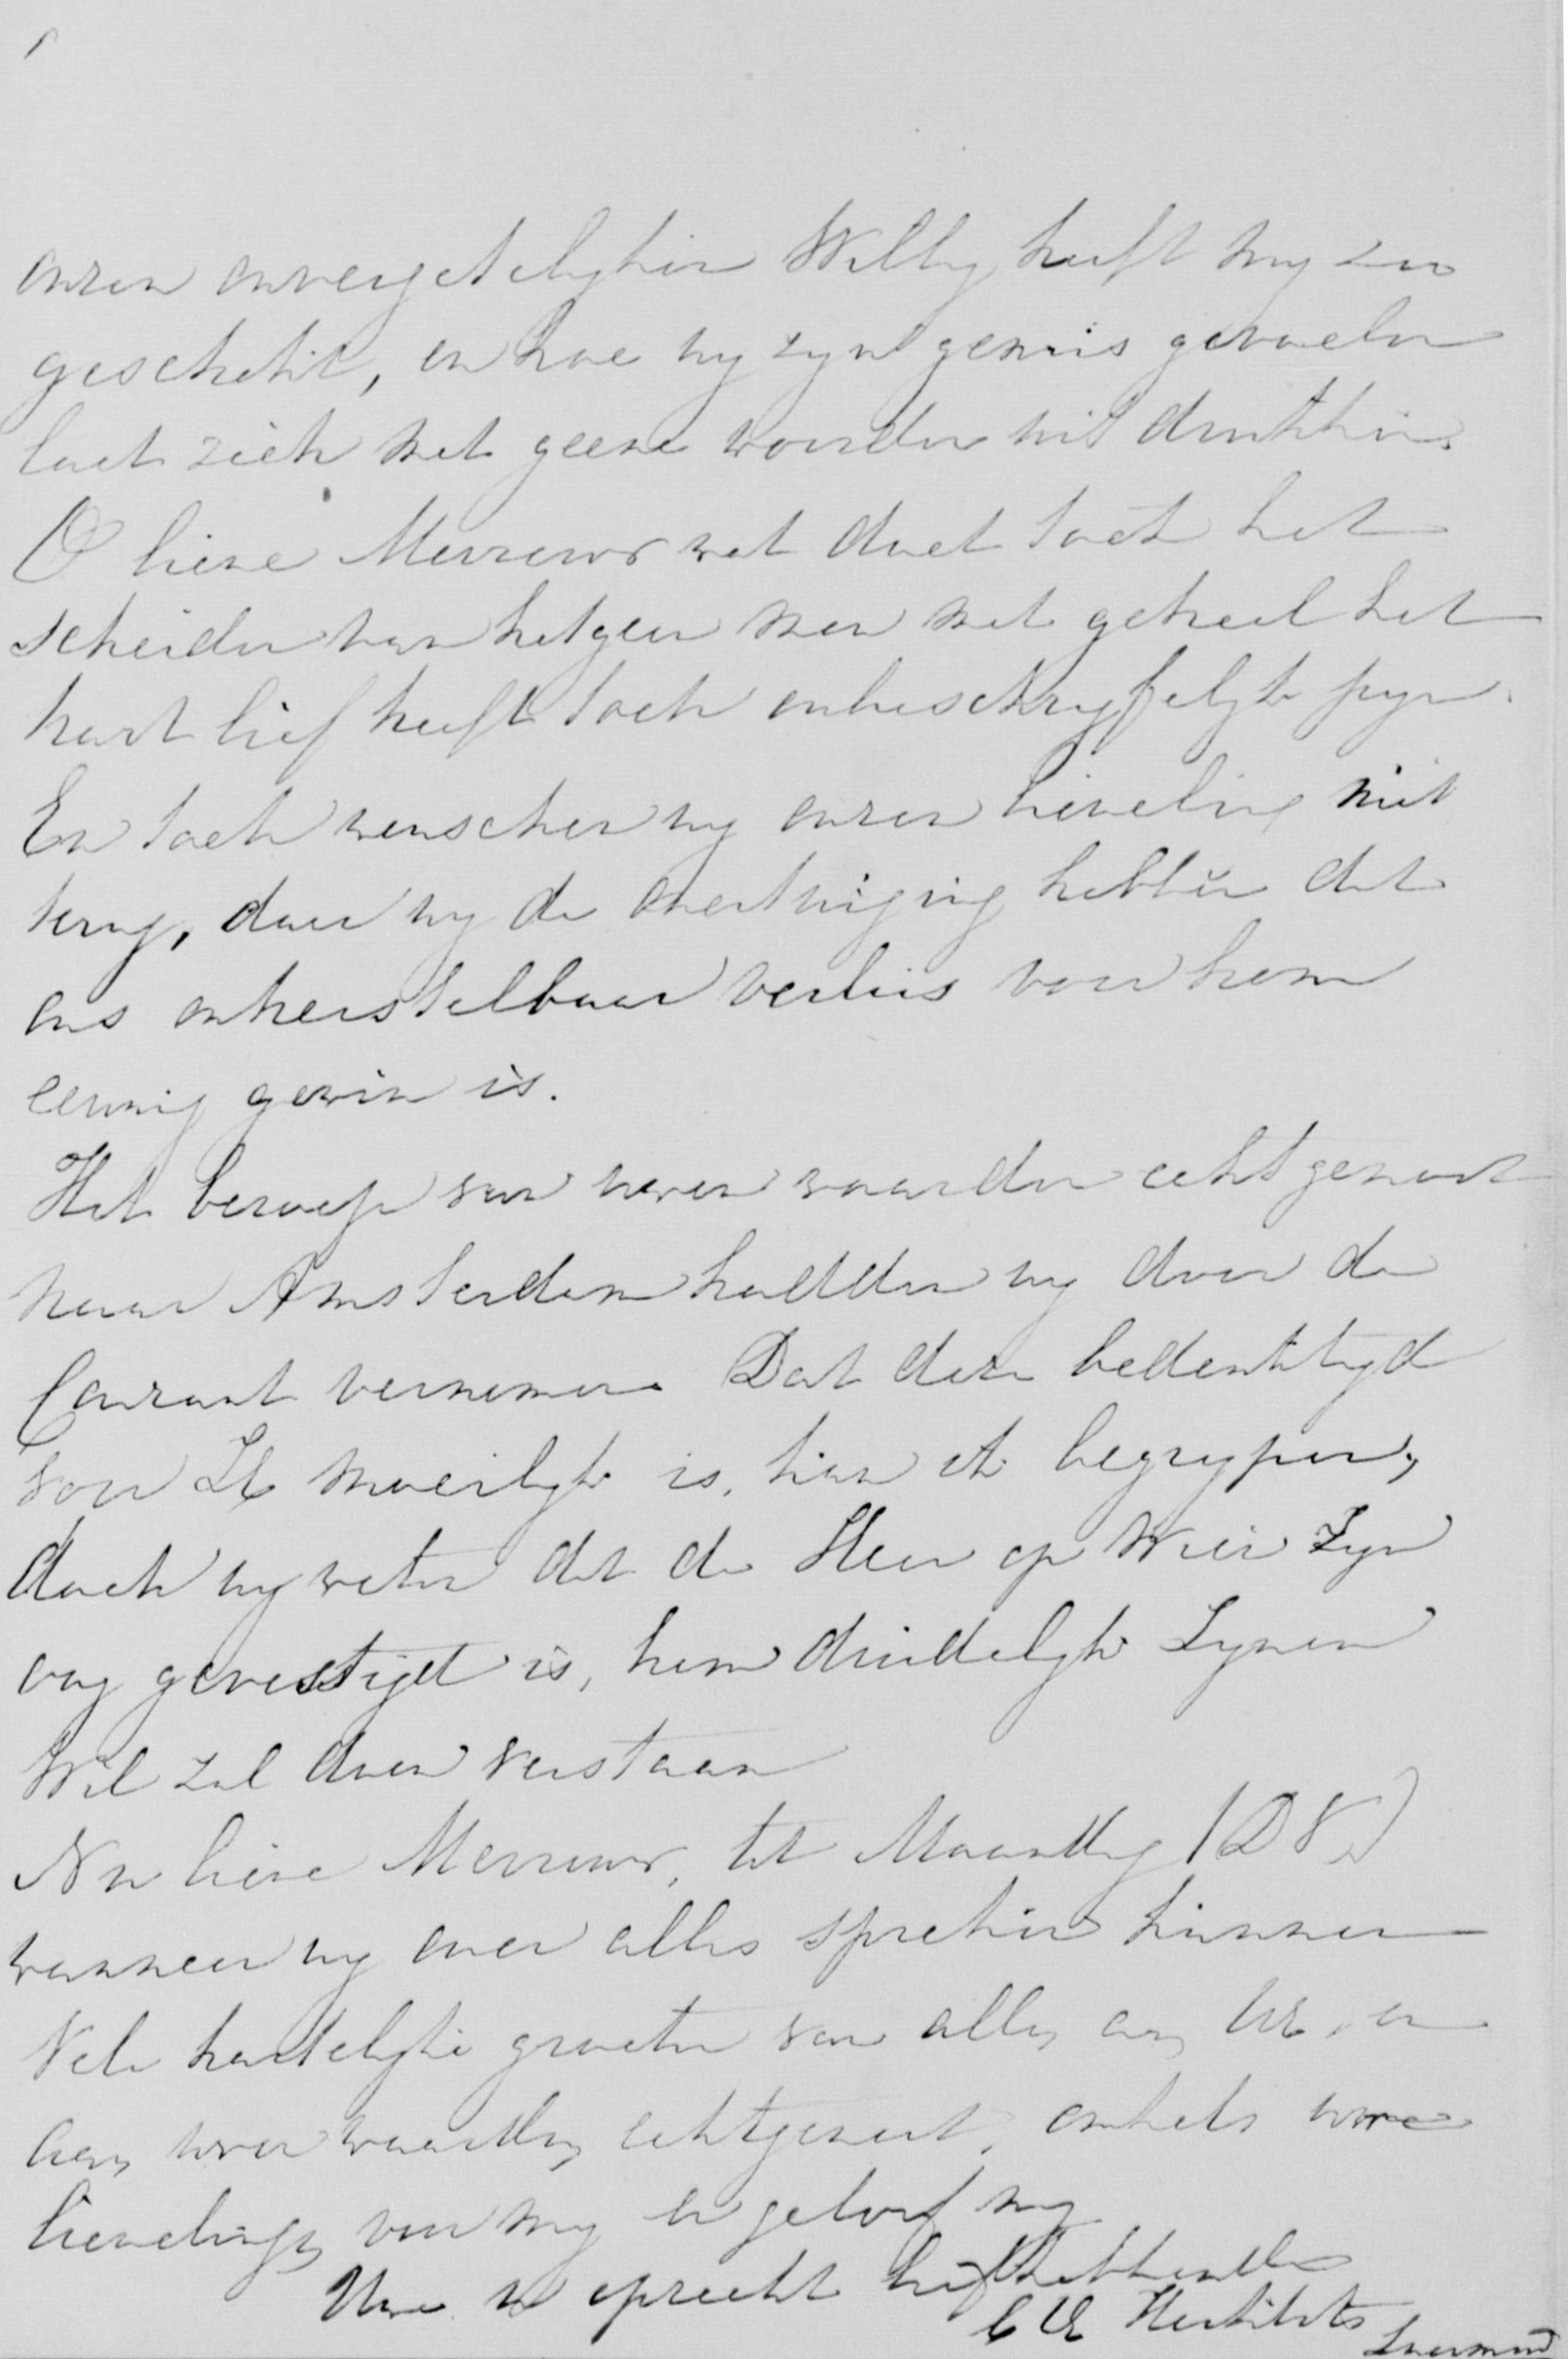 onzen onvergetelyken Willy heeft my zeer
geschokt, en hoe wy zyn gemis gevoelen
laat zich met geene woorden uitdrukken.
O lieve Mevrouw wat doet toch het
scheiden van hetgeen men met geheel het
hart lief heeft toch onbeschryfelyk pyn.
En toch wenschen wy onzen lieveling niet
terug, daar wy de overtuiging hebben dat
ons onherstelbaar verlies voor hem
eeuwig gewin is.
Het beroep van uwen waarden echtgenoot
naar Amsterdam hadden wy door de
Courant vernomen. Dat deze bedenktyd
voor moeilyk is, kan ik begrypen,
doch wy weten dat de Heer op Wien zyn
oog gevestigd is, hem duidelyk Zynen
Wil zal doen verstaan
Nu lieve Mevrouw, tot Maandag (D V.)
wanneer wy over alles spreken kunnen
Vele hartelyke groeten van allen aan UE, en
aan uwen waarden echtgenoot, omhels uwe
lievelingen van my en geloof my
Uwe oprecht liefhebbende